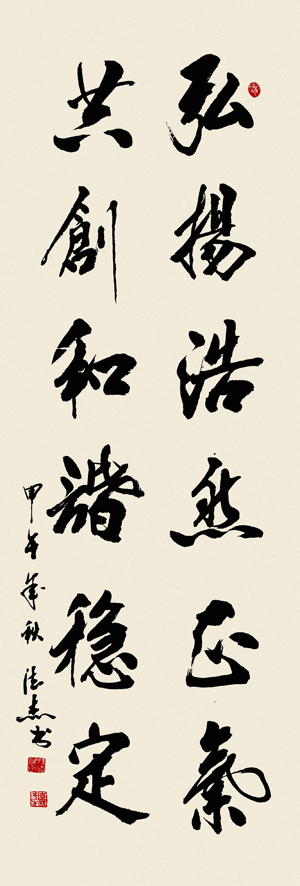 弘揚浩然正氣
共創和諧穩定
甲午年秋 志杰书